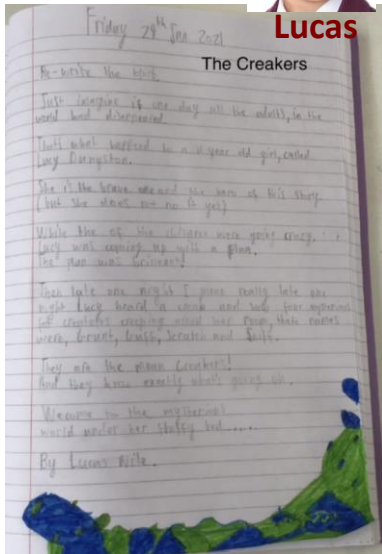 Lucas
Friday 29th Jan 2021
The Creakers
Re-write the blurb
Just imagine if one day all the adults, in the
world had disappeared.
That's what happened to a 11 year old girl, called
Lucy Dungston.
She is the brave the hero of this story
(but she does not no it yet)
While the of the children were going crazy,
Lucy was coming up with a plan.
The plan was brilliant!
Then late one night I mean really late one
night Lucy heard a creak and saw four mysterious
creatures creeping round her room, their names
were, Grunt, Guff, Scratch and Sniff.
They are the mean Creakers!
And they know exactly what's going on.
Welcome to the mysterious
world under her bed......
By Lucas Nile.